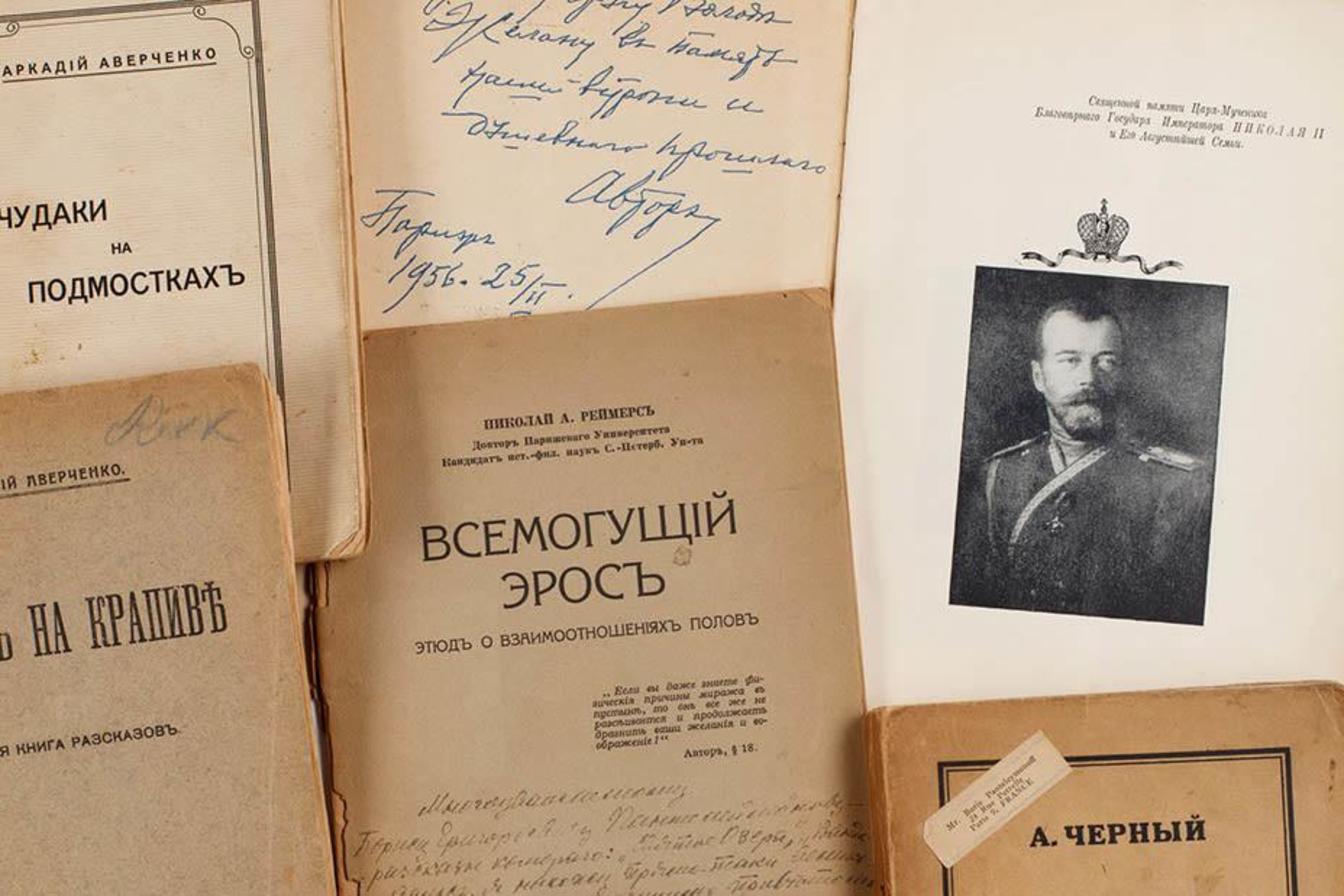 АРКАДІЙ АВЕРЧЕНКО
ЧУДАКИ
НА
ПОДМОСТКАХЪ
въ память
нашей встрѣчи и
душевнаго прошлаго
Авторъ
Парижъ
1956. 25/II.
Священной памяти Царя-Мученика
Благовѣрнаго Государя Императора НИКОЛАЯ II
и Его Августѣйшей Семьи.
ІЙ АВЕРЧЕНКО.
Ь НА КРАПИВѢ
Я КНИГА РАЗСКАЗОВЪ.
НИКОЛАЙ А. РЕЙМЕРСЪ
Докторъ Парижскаго Университета
Кандидатъ ист.-фил. наукъ С.-Петерб. Ун-та
ВСЕМОГУЩІЙ
ЭРОСЪ
ЭТЮДЪ О ВЗАИМООТНОШЕНІЯХЪ ПОЛОВЪ
„Если вы даже знаете фи-
зическія причины миража въ
пустынѣ, то онъ все же не
разсѣивается и продолжаетъ
дразнить ваши желанія и во-
ображеніе!“
Авторъ, § 18.
Многоуважаемому
Борису Григорьевичу Пантелеймонову,
разсказы котораго:
Mr. Boris Panteleymonoff
24 Rue
Paris 9, FRANCE
А. ЧЕРНЫЙ